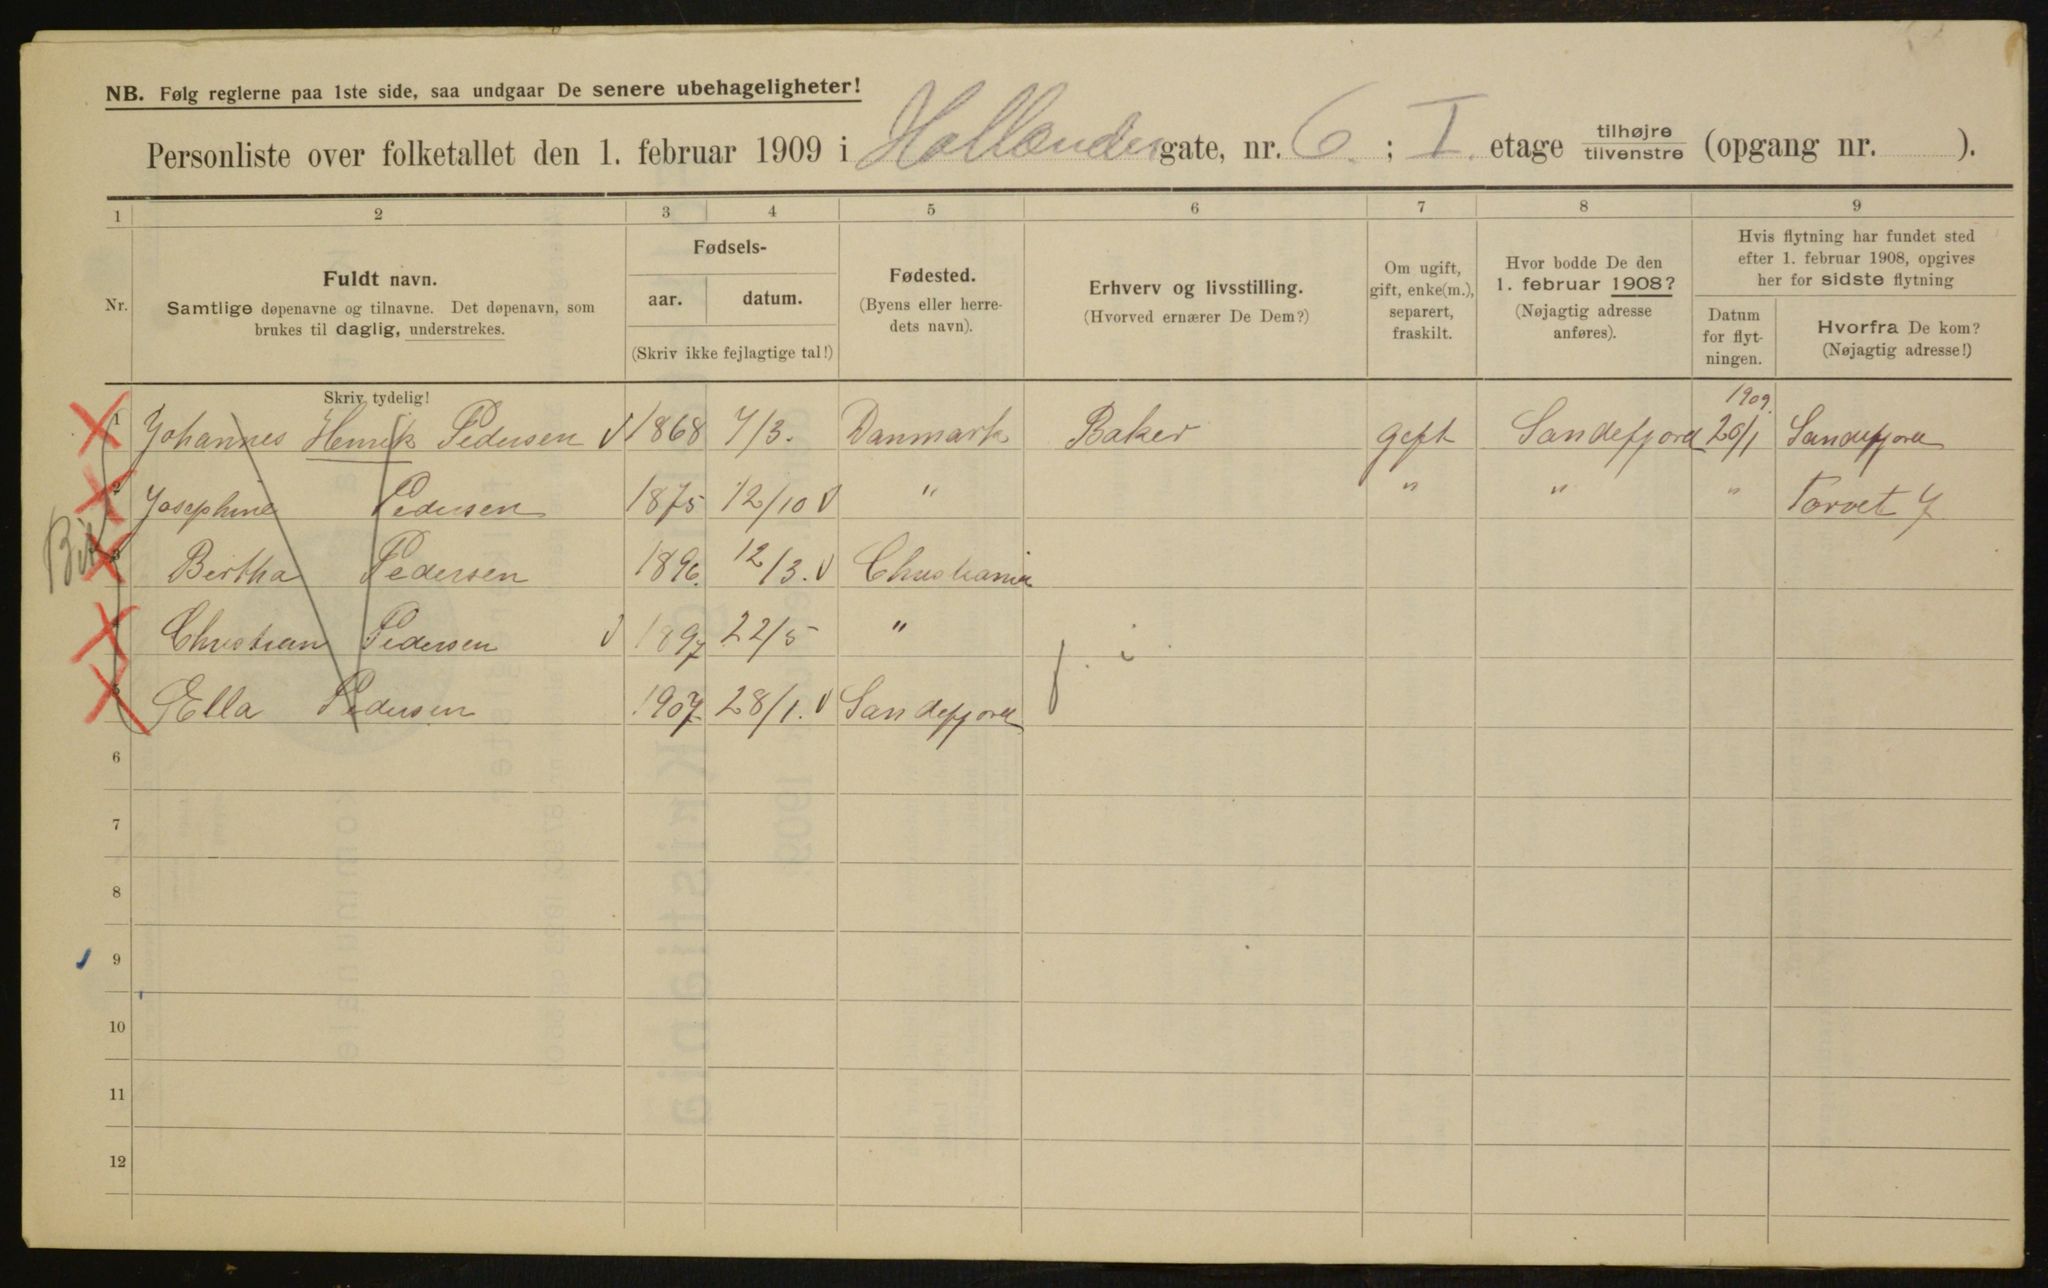 NB. Følg reglerne paa 1ste side, saa undgaar De senere ubehageligheter!
Personliste over folketallet den 1. februar 1909 i Hollændergate, nr. 6. ; I. etage tilhøjre/tilvenstre (opgang nr. ).
1 2 3 4 5 6 7 8 9
Nr.
Fuldt navn.
Samtlige døpenavne og tilnavne. Det døpenavn, som
brukes til daglig, understrekes.
Skriv tydelig!
Fødsels-
aar. datum.
(Skriv ikke fejlagtige tal!)
Fødested.
(Byens eller herre-
dets navn).
Erhverv og livsstilling.
(Hvorved ernærer De Dem?)
Om ugift,
gift, enke(m.),
separert,
fraskilt.
Hvor bodde De den
1. februar 1908?
(Nøjagtig adresse
anføres).
Hvis flytning har fundet sted
efter 1. februar 1908, opgives
her for sidste flytning
Datum
for flyt-
ningen.
Hvorfra De kom?
(Nøjagtig adresse!)
1909.
1 Johannes Henrik Pedersen 1868 7/3. Danmark Baker gift Sandefjord 26/1 Sandefjord
2 Josephine Pedersen 1875 12/10 " " " " Torvet 7
3 Bertha Pedersen 1896. 12/3. Christiania
4 Christian Pedersen 1897 22/5 "
5 Ella Pedersen 1907. 28/1. Sandefjord
6
7
8
9
10
11
12